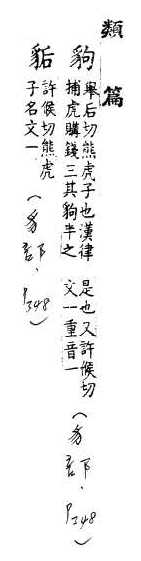 類篇
豿
舉后切熊虎子也漢律
捕虎購錢三其豿半之
是也又許候切
文一重音一
(豸部、P348)
許候切熊虎
子名文一
(豸部、P348)